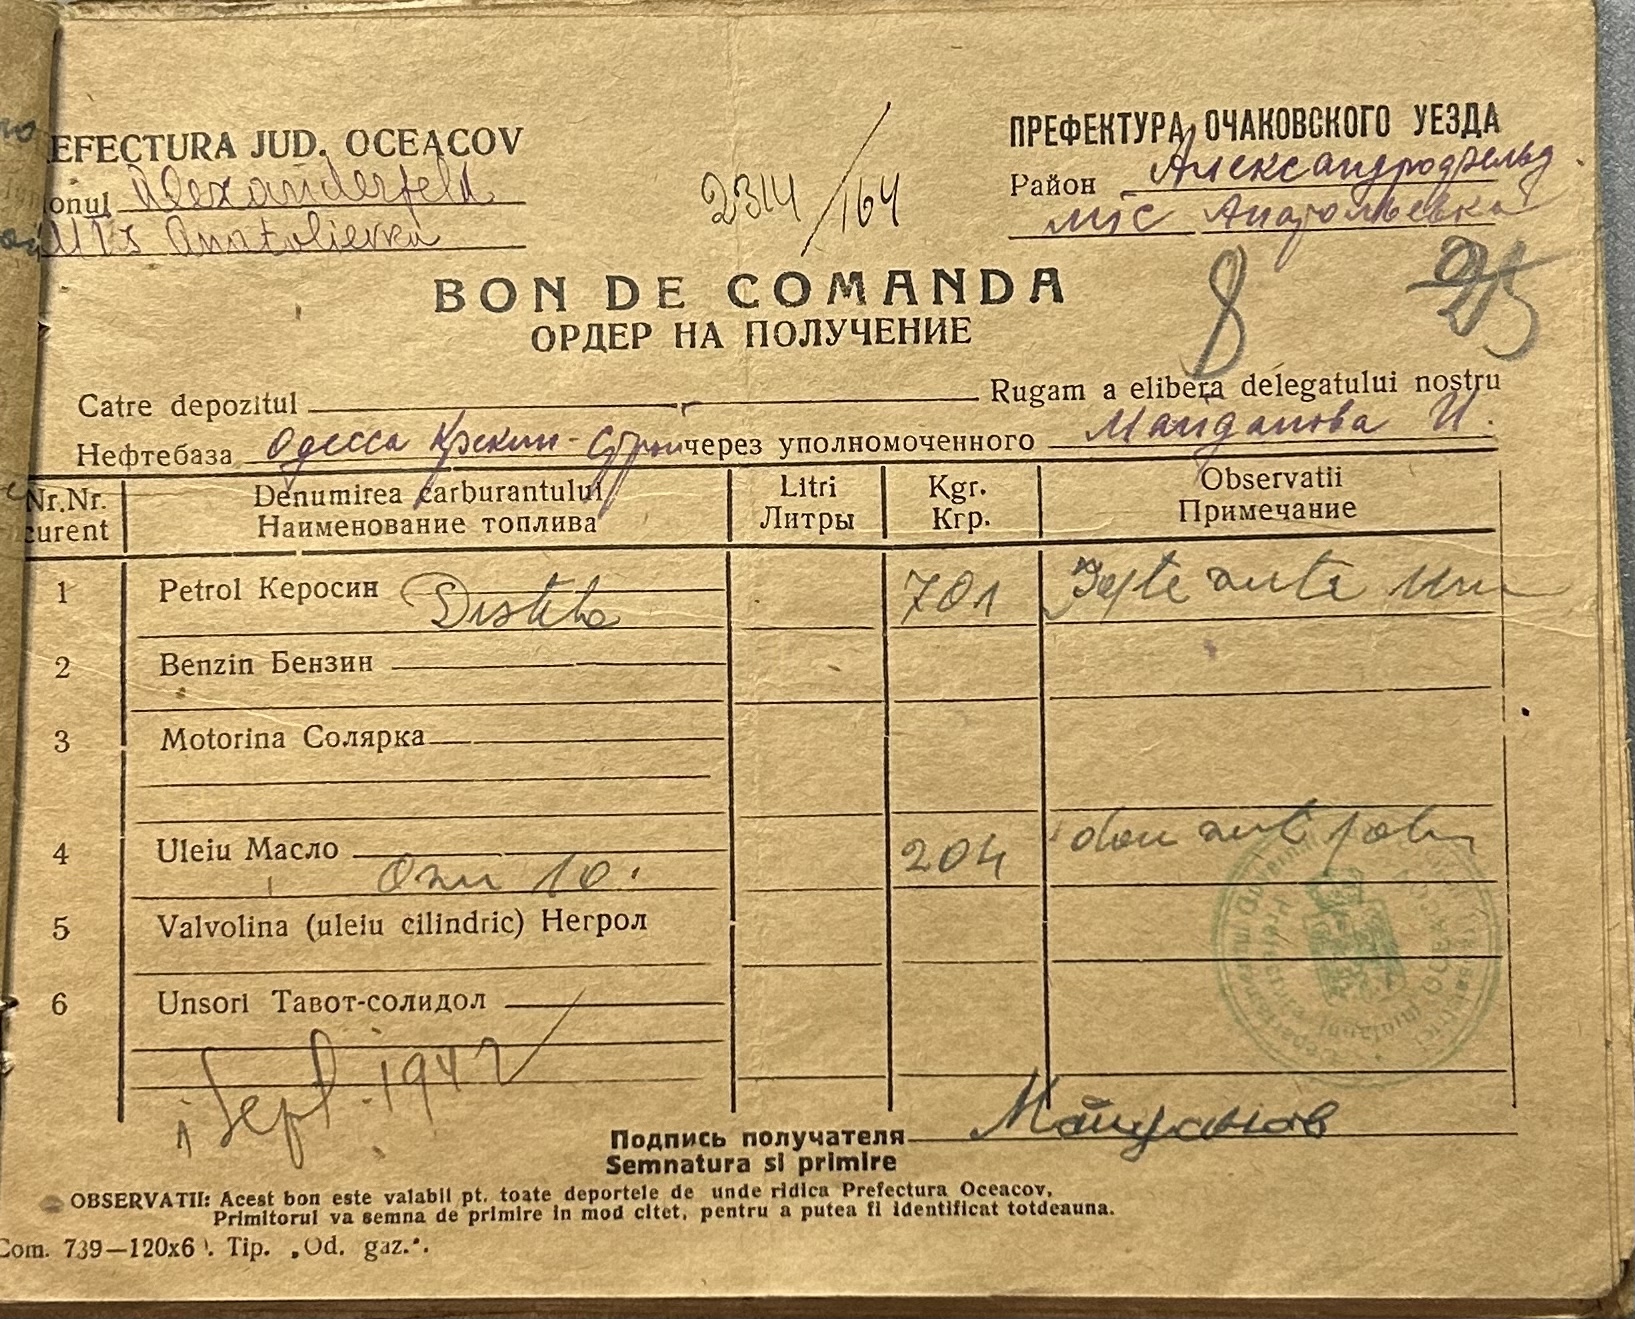 EFECTURA JUD. OCEACOV
onul Alexanderfeld
MTS Anatolievca
2314/164
ПРЕФЕКТУРА ОЧАКОВСКОГО УЕЗДА
Район Александрофельд
мтс Анатольевка
8 25
BON DE COMANDA
ОРДЕР НА ПОЛУЧЕНИЕ
Catre depozitul Rugam a elibera delegatului nostru
Нефтебаза Одесса Крекин- через уполномоченного Майданова И.
Nr.Nr. curent
Denumirea carburantului
Наименование топлива
Litri
Литры
Kgr.
Кгр.
Observatii
Примечание
1 Petrol Керосин 701 Șapte sute unu
2 Benzin Бензин
3 Motorina Солярка
4 Uleiu Масло 10. 204 patru
5 Valvolina (uleiu cilindric) Негрол
6 Unsori Тавот-солидол
1 Sept. 1942
Подпись получателя Майданов
Semnatura si primire
OBSERVATII: Acest bon este valabil pt. toate deportele de unde ridica Prefectura Oceacov,
Primitorul va semna de primire in mod citet, pentru a putea fi identificat totdeauna.
Com. 739—120x6 . Tip. „Od. gaz.“.